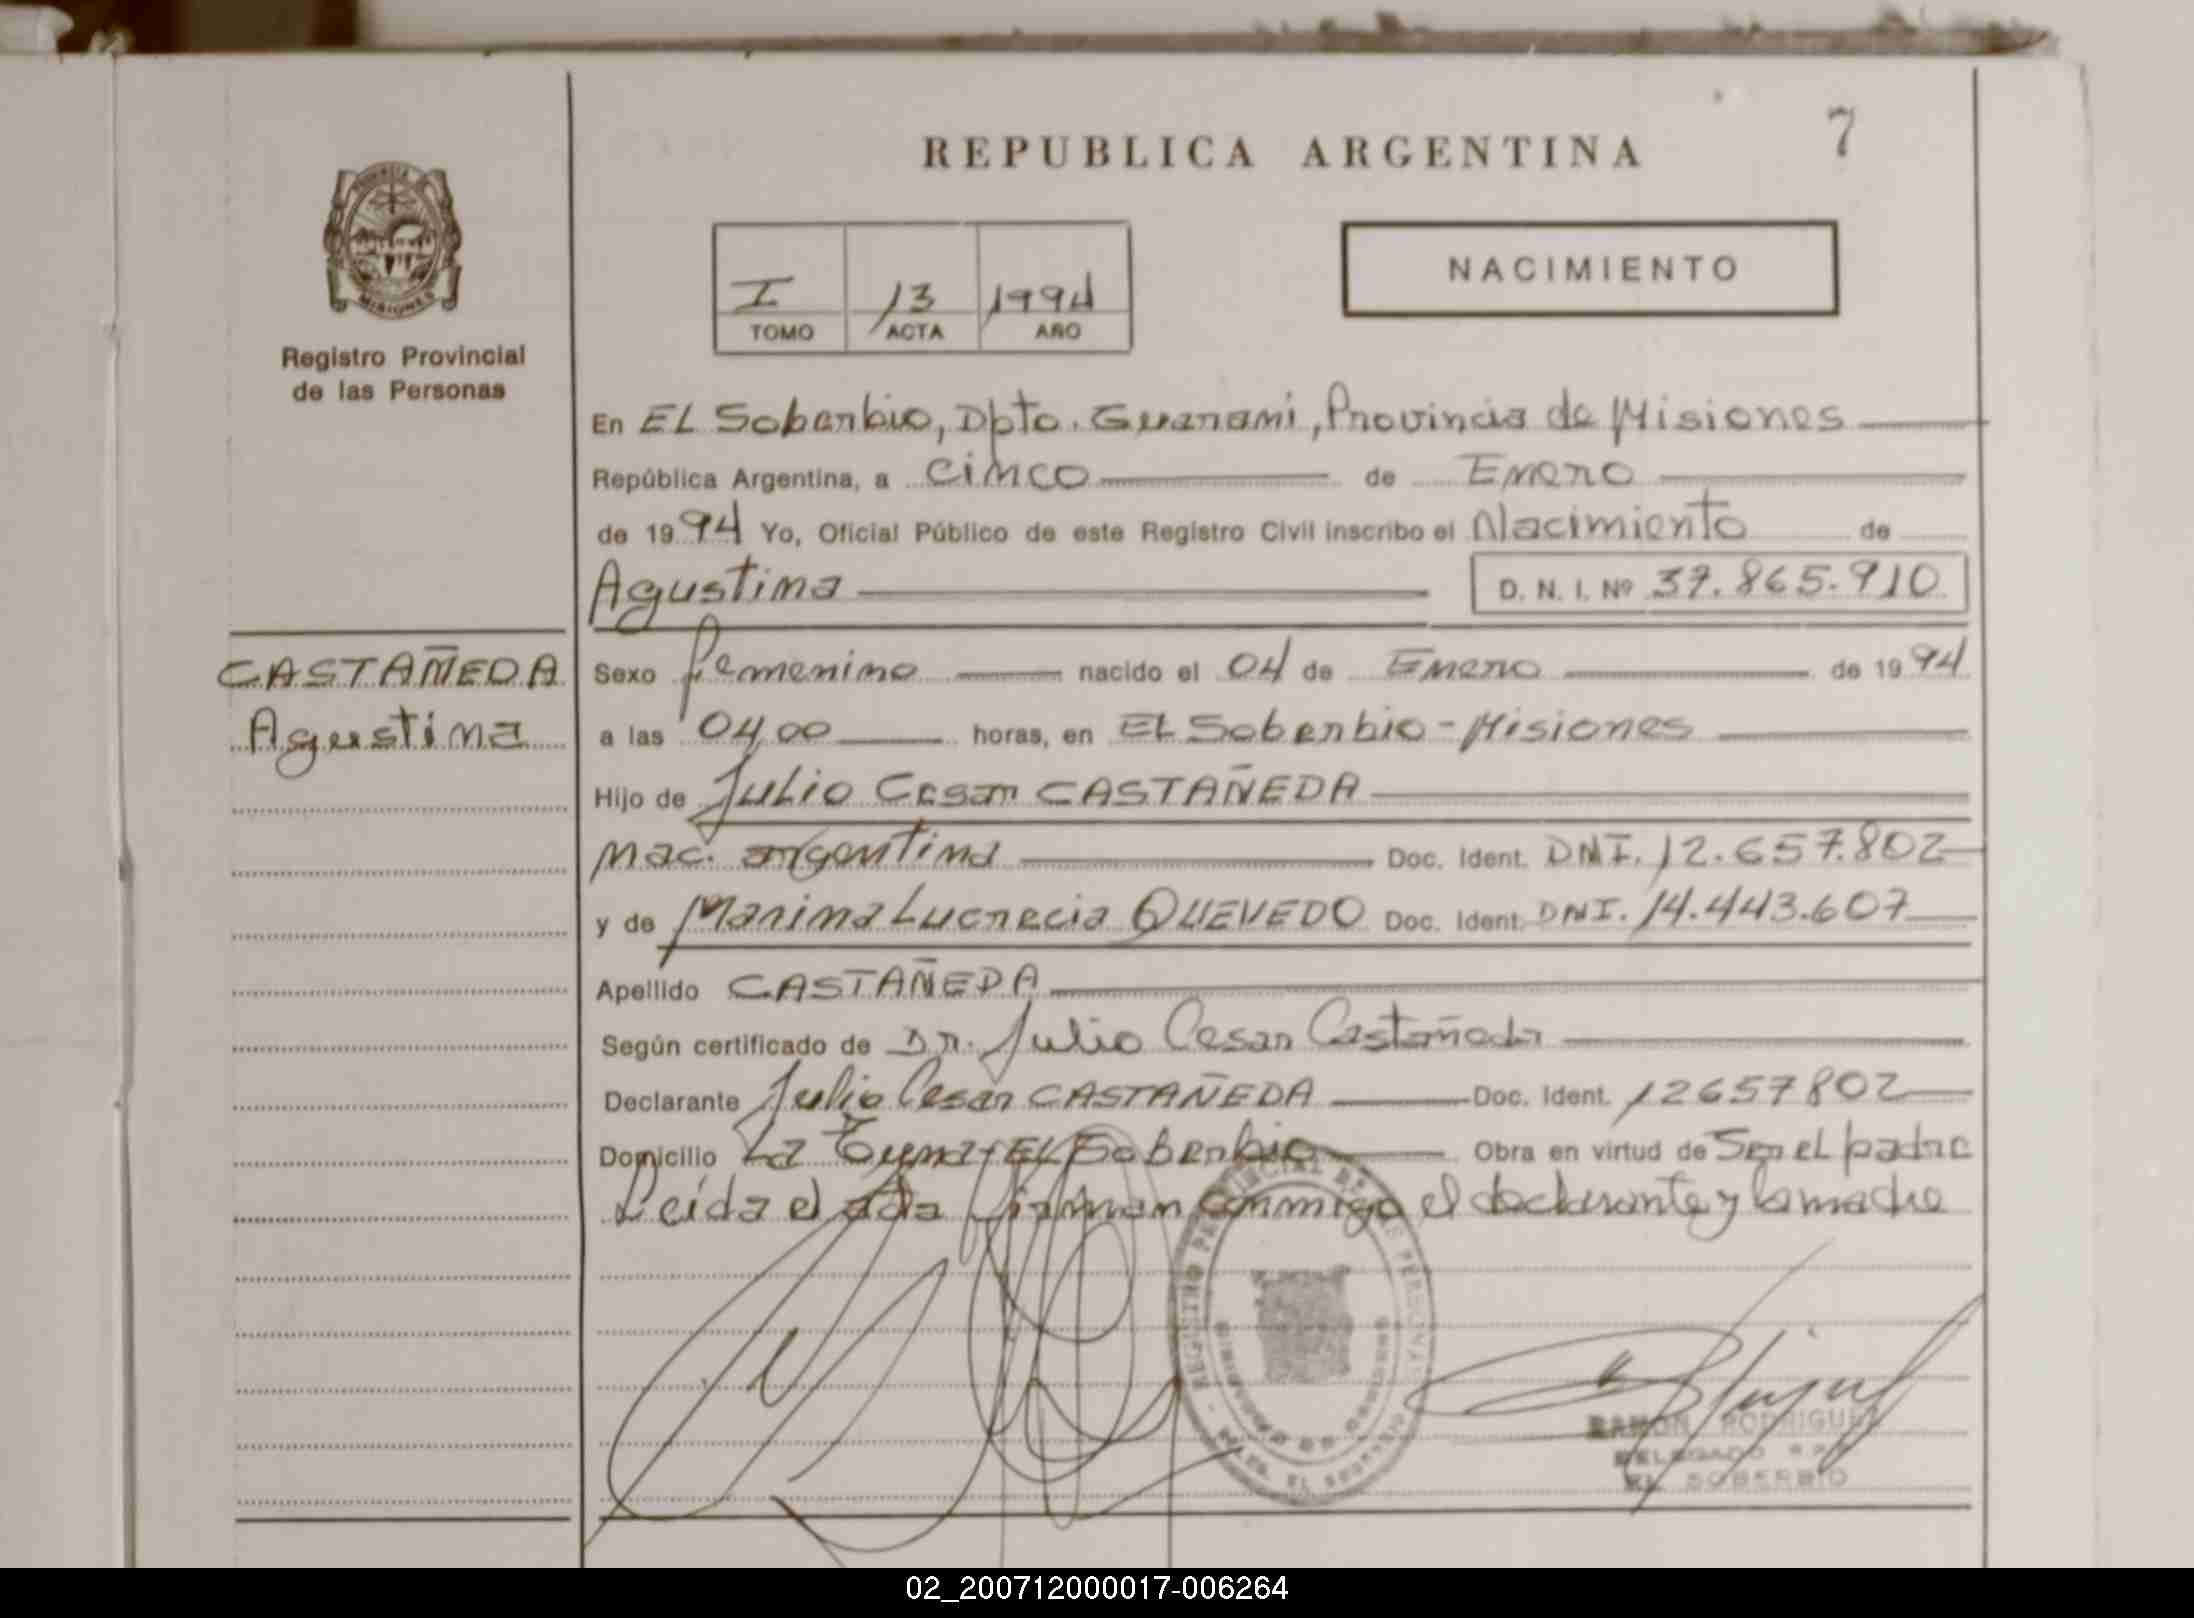 REPUBLICA ARGENTINA
7
NACIMIENTO
I 13 1994
TOMO ACTA AÑO
PROVINCIA DE MISIONES
Registro Provincial
de las Personas
CASTAÑEDA
Agustina
En EL Soberbio, Dpto. Guarani, Provincia de Misiones
República Argentina, a Cinco de Enero
de 1994 Yo, Oficial Público de este Registro Civil inscribo el Nacimiento de
Agustina D. N. I. Nº 37.865.910
Sexo femenino nacido el 04 de Enero de 1994
a las 04,00 horas, en EL Soberbio - Misiones
Hijo de Julio Cesar CASTAÑEDA
Nac. argentina Doc. Ident. DNI. 12.657.802
y de Marina Lucrecia QUEVEDO Doc. Ident. DNI. 14.443.607
Apellido CASTAÑEDA
Según certificado de Dr. Julio Cesar Castañeda
Declarante Julio Cesar CASTAÑEDA Doc. Ident. 12657802
Domicilio La Tuna - EL Soberbio Obra en virtud de Ser el padre
Leída el acta firman conmigo el declarante y la madre
REGISTRO PROVINCIAL DE LAS PERSONAS
EL SOBERBIO
RAMON RODRIGUEZ
DELEGADO R.P.P.
EL SOBERBIO
02_200712000017-006264